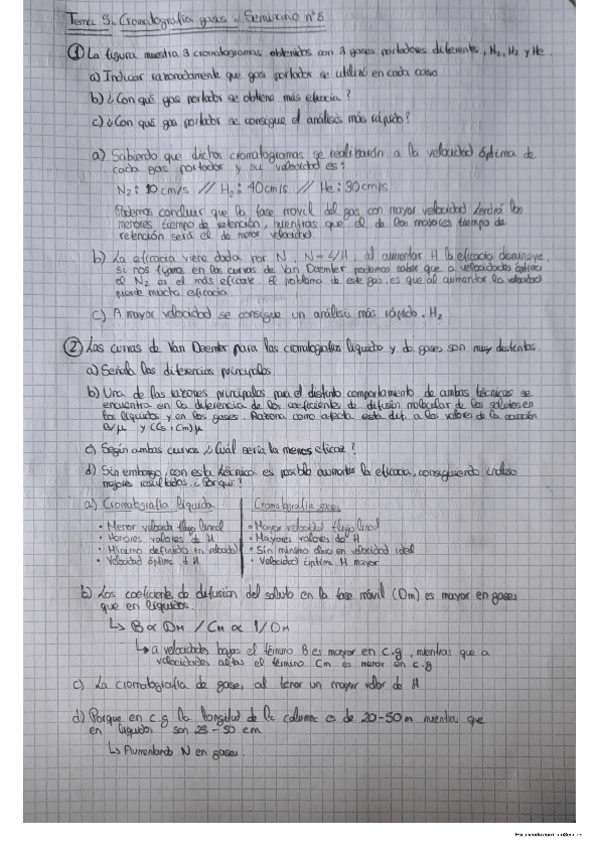 Tema 5. Cromatografía gases. Seminario nº8
① La figura muestra 3 cromatogramas obtenidos con 3 gases portadores diferentes, N₂, H₂ y He.
a) Indicar razonadamente que gas portador se utilizó en cada caso
b) ¿Con qué gas portador se obtiene más eficacia?
c) ¿Con qué gas portador se consigue el análisis más rápido?
a) Sabiendo que dichos cromatogramas se realizarón a la velocidad óptima de
cada gas portador y su velocidad es:
N₂: 10 cm/s // H₂: 40 cm/s // He: 30 cm/s
Podemos concluir que la fase movil del gas con mayor velocidad tendrá los
menores tiempo de retención, mientras que el de los mayores tiempo de
retención será el de menor velocidad
b) La eficacia viene dada por N, N = L/H, al aumentar H la eficacia disminuye,
si nos fijamos en las curvas de Van Deemter podemos saber que a velocidades óptimas
el N₂ es el más eficaz. El problema de este gas es que al aumentar la velocidad
pierde mucha eficacia
c) A mayor velocidad se consigue un análisis más rápido. H₂
② Las curvas de Van Deemter para las cromatografías líquido y de gases son muy distintas.
a) Señala las diferencias principales
b) Una de las razones principales para el distinto comportamiento de ambas técnicas se
encuentra en la diferencia de los coeficientes de difusión molecular de los solutos en
los líquidos y en los gases. Razona como afecta esta dif. a los valores de la ecuación
B/μ y (Cs + Cm)μ
c) Según ambas curvas ¿Cuál sería la menos eficaz?
d) Sin embargo, con esta técnica es posible aumentar la eficacia, consiguiendo incluso
mejores resultados. ¿Porque?
a) Cromatografía líquida | Cromatografía gases
• Menor velocidad flujo lineal | • Mayor velocidad flujo lineal
• Menores valores de H | • Mayores valores de H
• Mínimo definido en velocidad | • Sin mínimo claro en velocidad ideal
• Velocidad óptima ↓ H | • Velocidad óptima H mayor
b) Los coeficiente de difusión del soluto en la fase móvil (Dm) es mayor en gases
que en líquidos.
↳ B ∝ Dm / Cm ∝ 1/Dm
↳ a velocidades bajas el término B es mayor en c.g, mientras que a
velocidades altas el término Cm es menor en c.g
c) La cromatografía de gases, al tener un mayor valor de H
d) Porque en c.g la longitud de la columna es de 20-50 m mientra que
en líquidos son 25-50 cm
↳ Aumentando N en gases.